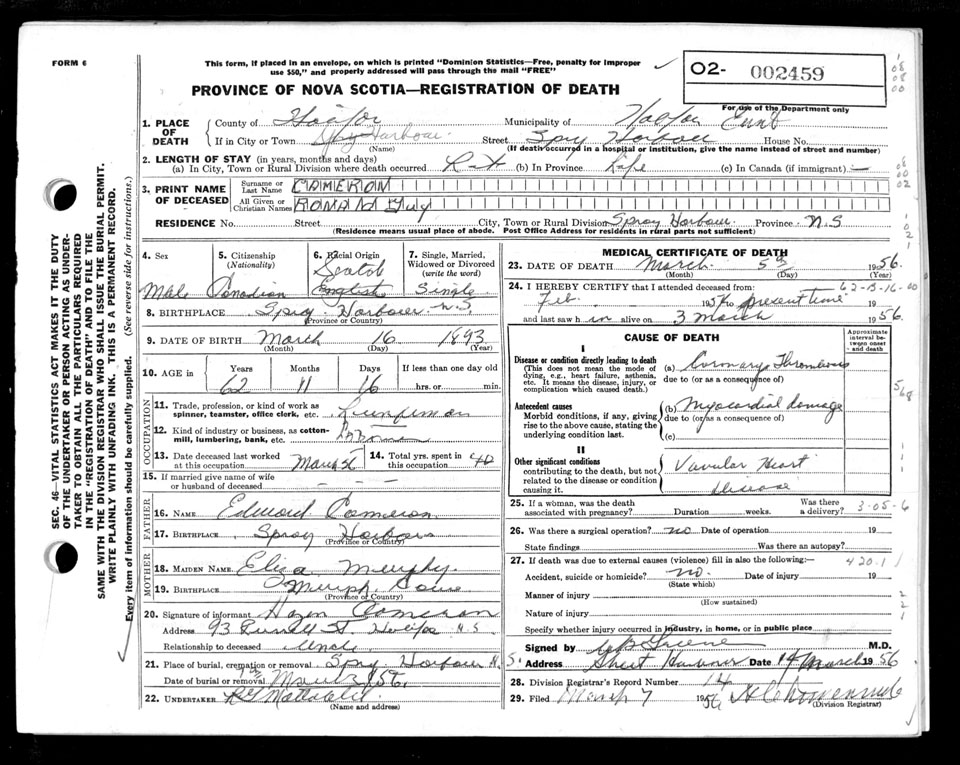 FORM 6
This form, if placed in an envelope, on which is printed "Dominion Statistics—Free, penalty for improper
use $50," and properly addressed will pass through the mail "FREE"
O2- 002459
PROVINCE OF NOVA SCOTIA—REGISTRATION OF DEATH
For use of the Department only
1. PLACE OF DEATH
County of Halifax Municipality of Halifax
If in City or Town Spry Harbour Street Spry Harbour House No.
(Name) (If death occurred in a hospital or institution, give the name instead of street and number)
2. LENGTH OF STAY (in years, months and days)
(a) In City, Town or Rural Division where death occurred (b) In Province Life (c) In Canada (if immigrant) —
3. PRINT NAME OF DECEASED
Surname or Last Name CAMERON
All Given or Christian Names Guy
RESIDENCE No. Street City, Town or Rural Division Spry Harbour Province N.S
(Residence means usual place of abode. Post Office Address for residents in rural parts not sufficient)
4. Sex Male
5. Citizenship (Nationality) Canadian
6. Racial Origin Scotch English
7. Single, Married, Widowed or Divorced (write the word) Single
8. BIRTHPLACE Spry Harbour N.S.
(Province or Country)
9. DATE OF BIRTH March 16 1893
(Month) (Day) (Year)
10. AGE in Years Months Days If less than one day old
62 11 16 hrs. or min.
OCCUPATION
11. Trade, profession, or kind of work as spinner, teamster, office clerk, etc.
12. Kind of industry or business, as cotton-mill, lumbering, bank, etc.
13. Date deceased last worked at this occupation March 56
14. Total yrs. spent in this occupation 40
15. If married give name of wife or husband of deceased - - -
FATHER
16. NAME Edward Cameron
17. BIRTHPLACE Spry Harbour
(Province or Country)
MOTHER
18. MAIDEN NAME Eliza Murphy
19. BIRTHPLACE Murphy Cove
(Province or Country)
20. Signature of informant Cameron
Address 93 St. Halifax N.S.
Relationship to deceased Uncle
21. Place of burial, cremation or removal Spry Harbour
Date of burial or removal 56
22. UNDERTAKER
(Name and address)
MEDICAL CERTIFICATE OF DEATH
23. DATE OF DEATH March 5th 1956
(Month) (Day) (Year)
24. I HEREBY CERTIFY that I attended deceased from: 62-13-16-00
Feb 19 to present time 19
and last saw him alive on 3 March 1956
CAUSE OF DEATH
Approximate interval between onset and death
I
Disease or condition directly leading to death
(This does not mean the mode of dying, e.g., heart failure, asthenia, etc. It means the disease, injury, or complication which caused death.)
(a) Coronary Thrombosis
due to (or as a consequence of)
Antecedent causes
Morbid conditions, if any, giving rise to the above cause, stating the underlying condition last.
(b) Myocardial damage
due to (or as a consequence of)
(c)
II
Other significant conditions
contributing to the death, but not related to the disease or condition causing it.
Valvular Heart
disease
25. If a woman, was the death associated with pregnancy? Duration weeks. Was there a delivery? 3-05-6
26. Was there a surgical operation? no Date of operation 19
State findings Was there an autopsy?
27. If death was due to external causes (violence) fill in also the following:— 420.1
Accident, suicide or homicide? no Date of injury 19
(State which)
Manner of injury
(How sustained)
Nature of injury
Specify whether injury occurred in industry, in home, or in public place
Signed by M.D.
Address Sheet Harbour Date March 1956
28. Division Registrar's Record No. 14
29. Filed March 7 1956
(Division Registrar)
SEC. 46—VITAL STATISTICS ACT MAKES IT THE DUTY
OF THE UNDERTAKER OR PERSON ACTING AS UNDER-
TAKER TO OBTAIN ALL THE PARTICULARS REQUIRED
IN THE "REGISTRATION OF DEATH" AND TO FILE THE
SAME WITH THE DIVISION REGISTRAR WHO SHALL ISSUE THE BURIAL PERMIT.
WRITE PLAINLY WITH UNFADING INK. THIS IS A PERMANENT RECORD.
Every item of information should be carefully supplied. (See reverse side for instructions.)